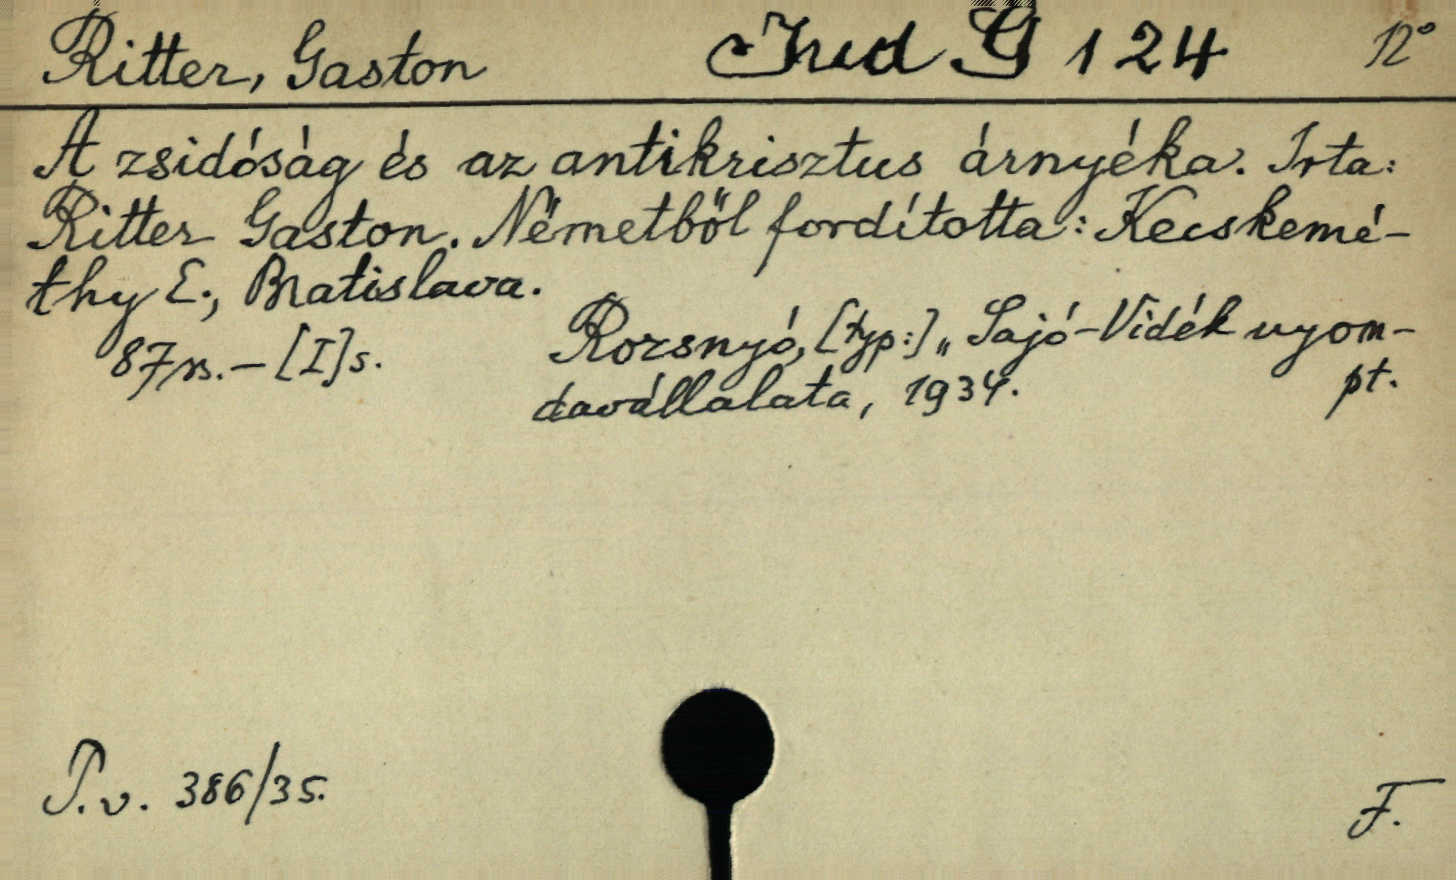 Ritter, Gaston Jud G 124 12°
A zsidóság és az antikrisztus árnyéka. Irta:
Ritter Gaston. Németből fordította: Kecskemé-
thy E., Bratislava.
87 n. – [I] s. Rozsnyó, [typ:] „Sajó-Vidék nyom-
davállalata, 1934. pt.
P. v. 386/35. F.